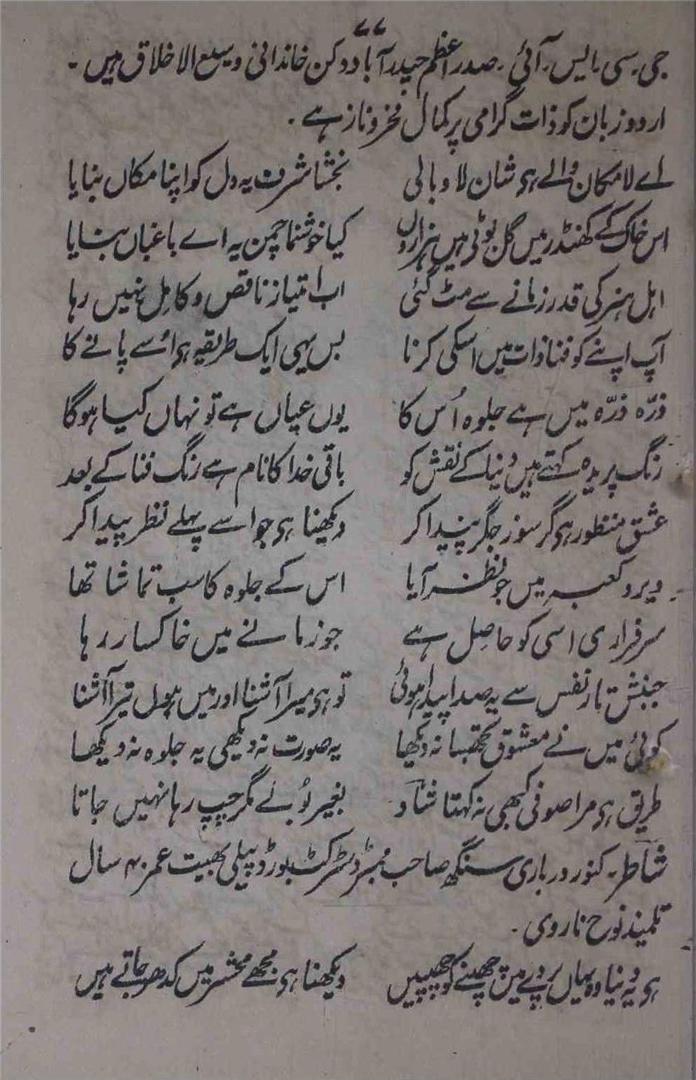 ۷۷
جی۔ سی۔ ایس۔ آئی۔ صدر اعظم حیدرآباد دکن خاندانی وسیع الاخلاق ہیں۔
اردو زبان کو ذات گرامی پر کمال فخر و ناز ہے۔
اے لامکان والے ہو شان لاوبالی بخشا شرف یہ دل کو اپنا مکاں بنایا
اس خاک کے کھنڈر میں گل بوٹی ہیں ہزاروں کیا خوشنما چمن یہ اے باغباں بنایا
اہل ہنر کی قدر زمانے سے مٹ گئی اب امتیاز ناقص و کامل نہیں رہا
آپ اپنے کو فنا ذات میں اسکی کرنا بس یہی ایک طریقہ ہو اُسے پانے کا
ذرّہ ذرّہ میں ہے جلوہ اُس کا یوں عیاں ہے تو نہاں کیا ہوگا
رنگ پریدہ کہتے ہیں دنیا کے نقش کو باقی خدا کا نام ہے رنگ فنا کے بعد
عشق منظور ہو گر سوز جگر پیدا کر دیکھنا ہو جو اسے پہلے نظر پیدا کر
دیر و کعبہ میں جو نظر آیا اس کے جلوہ کا سب تماشا تھا
سرفرازی اسی کو حاصل ہے جو زمانے میں خاکسار رہا
جنبش تار نفس سے یہ صدا پیدا ہوئی تو ہو میرا آشنا اور میں ہوں تیرا آشنا
کوئی میں نے معشوق تجھسا نہ دیکھا یہ صورت نہ دیکھی یہ جلوہ نہ دیکھا
طریق ہو مرا صوفی کبھی نہ کہتا شاد بغیر بولے مگر چپ رہا نہیں جاتا
شاطر۔ کنور درباری سنگھ صاحب ممبر ڈسٹرکٹ بورڈ پیلی بھیت عمر ۴۰ سال
تلمیذ نوح ناروی۔
ہو یہ دنیا وہ یہاں پردے میں چھپنے کو چھپیں دیکھنا ہو مجھے محشر میں کدھر جاتے ہیں